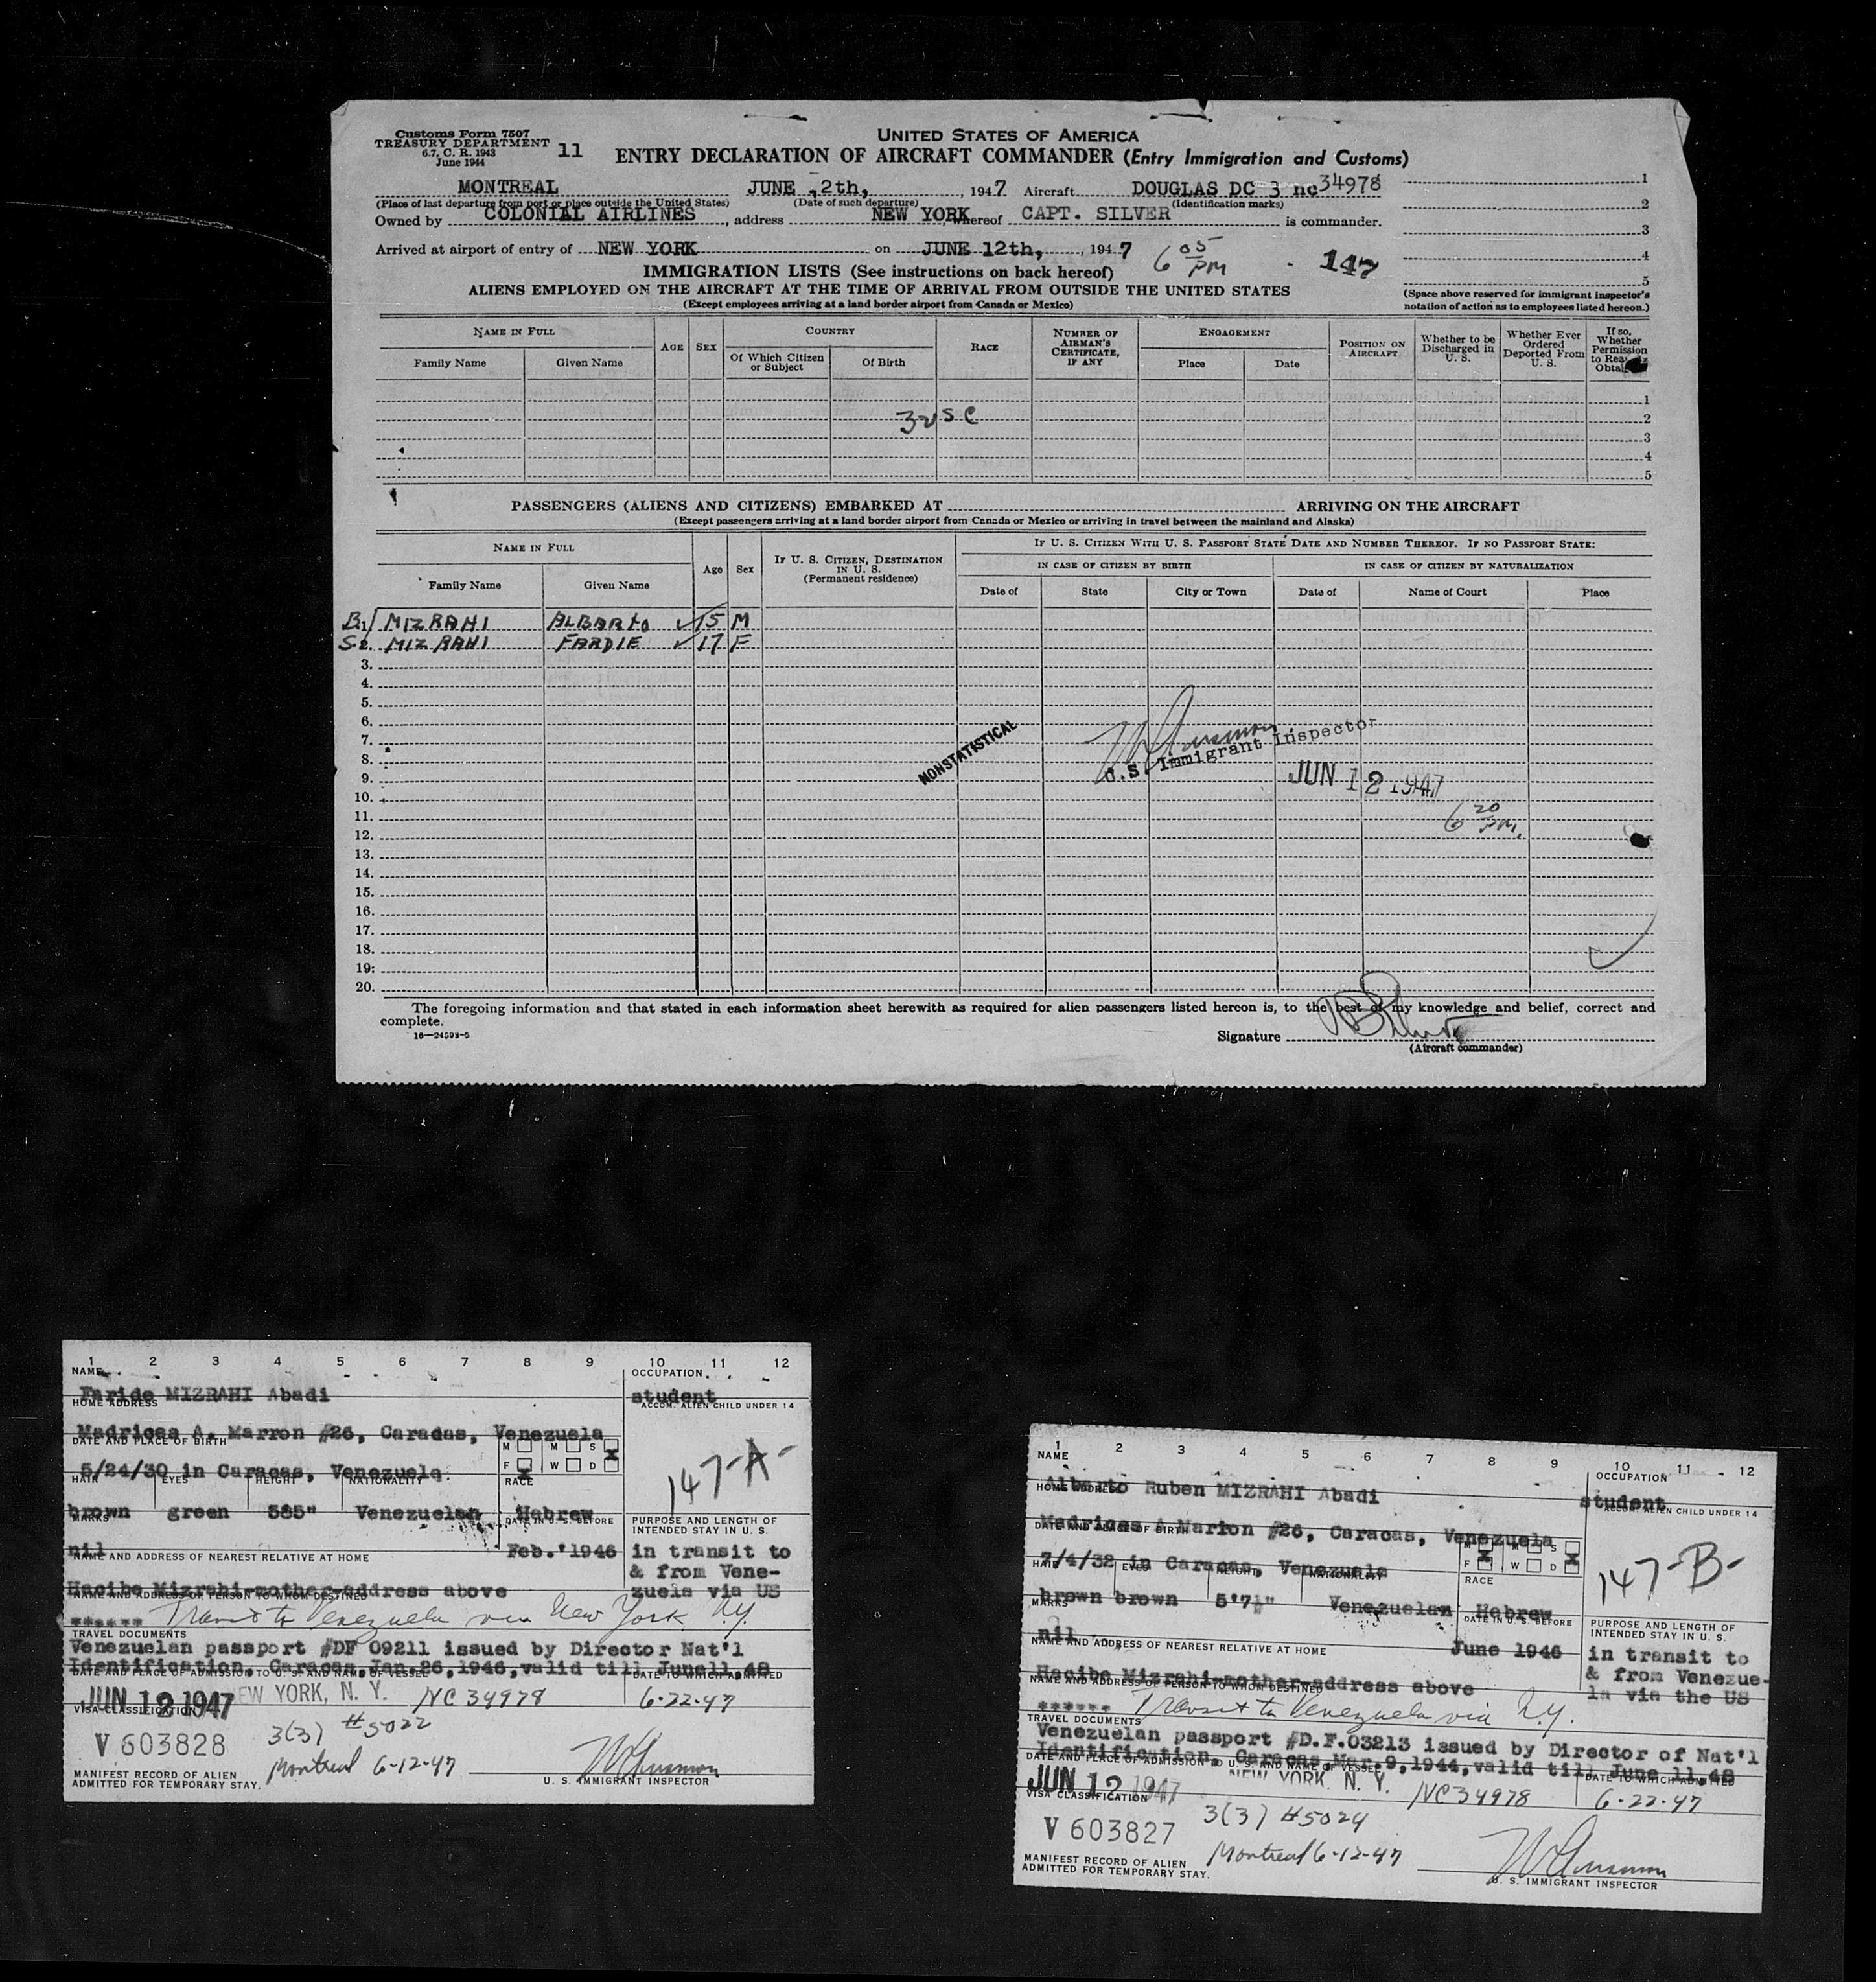 Customs Form 7507
TREASURY DEPARTMENT
6.7, C. R. 1943
June 1944
11
UNITED STATES OF AMERICA
ENTRY DECLARATION OF AIRCRAFT COMMANDER (Entry Immigration and Customs)
MONTREAL JUNE 2th, , 1947 Aircraft DOUGLAS DC 3 nc34978
(Place of last departure from port or place outside the United States) (Date of such departure) (Identification marks)
Owned by COLONIAL AIRLINES , address NEW YORK whereof CAPT. SILVER is commander.
Arrived at airport of entry of NEW YORK on JUNE 12th, , 1947 6 05 PM 147
1
2
3
4
5
(Space above reserved for immigrant inspector's
notation of action as to employees listed hereon.)
IMMIGRATION LISTS (See instructions on back hereof)
ALIENS EMPLOYED ON THE AIRCRAFT AT THE TIME OF ARRIVAL FROM OUTSIDE THE UNITED STATES
(Except employees arriving at a land border airport from Canada or Mexico)
NAME IN FULL
Family Name Given Name
AGE SEX
COUNTRY
Of Which Citizen or Subject Of Birth
RACE
NUMBER OF AIRMAN'S CERTIFICATE, IF ANY
ENGAGEMENT
Place Date
POSITION ON AIRCRAFT
Whether to be Discharged in U. S.
Whether Ever Ordered Deported From U. S.
If so, Whether Permission to
1
3 USC 2
3
4
5
PASSENGERS (ALIENS AND CITIZENS) EMBARKED AT ARRIVING ON THE AIRCRAFT
(Except passengers arriving at a land border airport from Canada or Mexico or arriving in travel between the mainland and Alaska)
NAME IN FULL
Family Name Given Name
Age Sex
IF U. S. CITIZEN, DESTINATION IN U. S. (Permanent residence)
IF U. S. CITIZEN WITH U. S. PASSPORT STATE DATE AND NUMBER THEREOF. IF NO PASSPORT STATE:
IN CASE OF CITIZEN BY BIRTH IN CASE OF CITIZEN BY NATURALIZATION
Date of State City or Town Date of Name of Court Place
B 1 MIZRAHI ALBARTO 15 M
S 2. MIZRAHI FARDIE 17 F
3.
4.
5.
6.
7.
8.
9.
10.
11.
12.
13.
14.
15.
16.
17.
18.
19.
20.
NONSTATISTICAL
U.S. Immigrant Inspector
JUN 12 1947
6 20 PM.
The foregoing information and that stated in each information sheet herewith as required for alien passengers listed hereon is, to the best of my knowledge and belief, correct and
complete.
16—24598-5
Signature
(Aircraft commander)
1 2 3 4 5 6 7 8 9 10 11 12
NAME OCCUPATION
Faride MIZRAHI Abadi student
HOME ADDRESS ACCOM. ALIEN CHILD UNDER 14
Madrices A. Marron #26, Caracas, Venezuela
DATE AND PLACE OF BIRTH M M S
5/24/30 in Caracas, Venezuela F W D
147-A-
HAIR EYES HEIGHT NATIONALITY RACE
brown green 585" Venezuelan Hebrew
MARKS DATE IN U. S. BEFORE PURPOSE AND LENGTH OF INTENDED STAY IN U. S.
nil Feb.'1946 in transit to
NAME AND ADDRESS OF NEAREST RELATIVE AT HOME & from Vene-
Hacibe Mizrahi-mother-address above zuela via US
NAME AND ADDRESS OF PERSON TO WHOM DESTINED
****** Transit to Venezuela via New York N.Y.
TRAVEL DOCUMENTS
Venezuelan passport #DF 09211 issued by Director Nat'l
Identification, Caracas, Jan. 26, 1946, valid till June 11, 48
DATE AND PLACE OF ADMISSION TO U. S. AND NAME OF VESSEL DATE TO WHICH ADMITTED
JUN 12 1947 EW YORK, N. Y. NC 34978 6-22-47
VISA CLASSIFICATION
3(3) #5022
V 603828
Montreal 6-12-47
MANIFEST RECORD OF ALIEN
ADMITTED FOR TEMPORARY STAY.
U. S. IMMIGRANT INSPECTOR
1 2 3 4 5 6 7 8 9 10 11 12
NAME OCCUPATION
Alberto Ruben MIZRAHI Abadi student
HOME ADDRESS ACCOM. ALIEN CHILD UNDER 14
Madrices A Marion #26, Caracas, Venezuela
DATE AND PLACE OF BIRTH M M S
7/4/32 in Caracas, Venezuela F W D
147-B-
HAIR EYES HEIGHT NATIONALITY RACE
brown brown 5'7½" Venezuelan Hebrew
MARKS DATE IN U. S. BEFORE PURPOSE AND LENGTH OF INTENDED STAY IN U. S.
nil June 1946 in transit to
NAME AND ADDRESS OF NEAREST RELATIVE AT HOME & from Venezue-
Hacibe Mizrahi-mother-address above la via the US
NAME AND ADDRESS OF PERSON TO WHOM DESTINED
****** Transit to Venezuela via N.Y.
TRAVEL DOCUMENTS
Venezuelan passport #D.F.03213 issued by Director of Nat'l
Identification, Caracas, Mar. 9, 1944, valid till June 11, 48
DATE AND PLACE OF ADMISSION TO U. S. AND NAME OF VESSEL DATE TO WHICH ADMITTED
JUN 12 1947 NEW YORK, N. Y. NC 34978 6-22-47
VISA CLASSIFICATION
3(3) #5024
V 603827
Montreal 6-12-47
MANIFEST RECORD OF ALIEN
ADMITTED FOR TEMPORARY STAY.
U. S. IMMIGRANT INSPECTOR